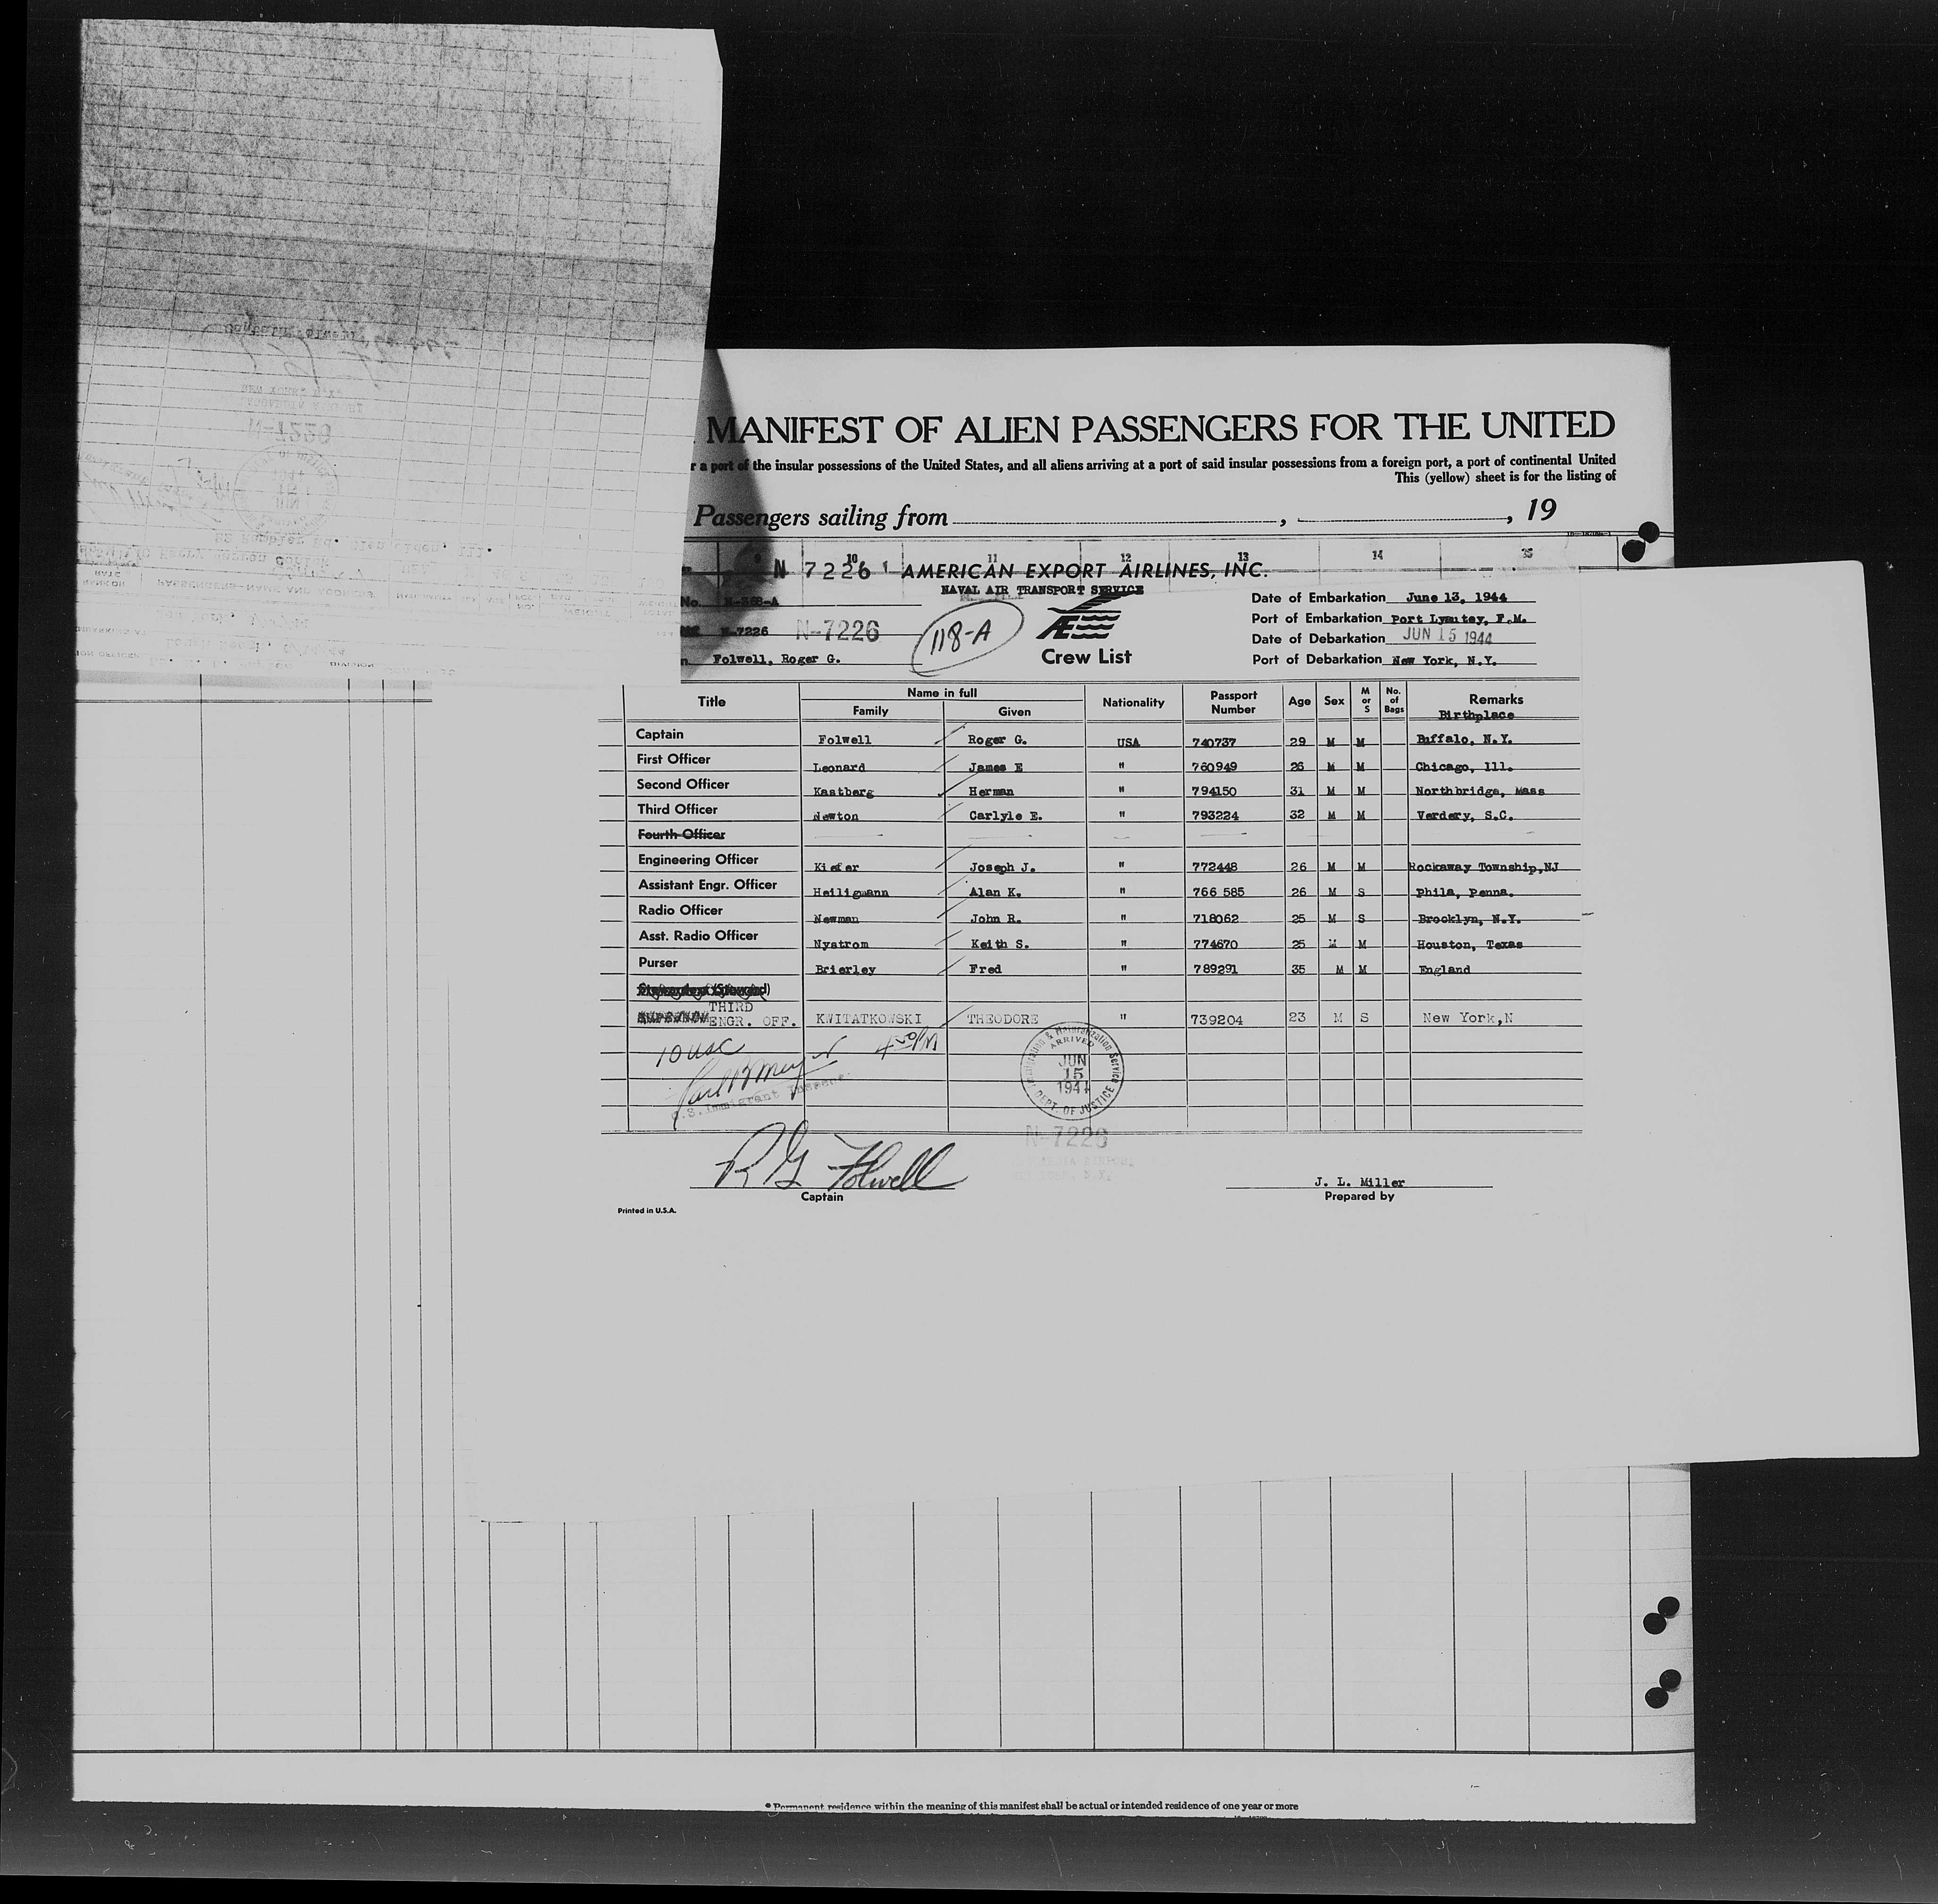 MANIFEST OF ALIEN PASSENGERS FOR THE UNITED
a port of the insular possessions of the United States, and all aliens arriving at a port of said insular possessions from a foreign port, a port of continental United
This (yellow) sheet is for the listing of
Passengers sailing from , , 19
9 10 11 12 13 14 15
N 7226 AMERICAN EXPORT AIRLINES, INC.
NAVAL AIR TRANSPORT SERVICE
No. N-368-A
N-7226 N-7226
118-A
Folwell, Roger G.
Æ
Crew List
Date of Embarkation June 13, 1944
Port of Embarkation Port Lyautey, F.M.
Date of Debarkation JUN 15 1944
Port of Debarkation New York, N.Y.
Title Name in full Nationality Passport Number Age Sex M or S No. of Bags Remarks
Family Given Birthplace
Captain Folwell Roger G. USA 740737 29 M M Buffalo, N.Y.
First Officer Leonard James E " 760949 26 M M Chicago, Ill.
Second Officer Kastberg Herman " 794150 31 M M Northbridge, Mass
Third Officer Newton Carlyle E. " 793224 32 M M Verdery, S.C.
Fourth Officer
Engineering Officer Kiefer Joseph J. " 772448 26 M M Rockaway Township,NJ
Assistant Engr. Officer Heiligmann Alan K. " 766 585 26 M S Phila, Penna.
Radio Officer Newman John R. " 718062 25 M S Brooklyn, N.Y.
Asst. Radio Officer Nystrom Keith S. " 774670 25 M M Houston, Texas
Purser Brierley Fred " 789291 35 M M England
(Steward)
THIRD
ENGR. OFF. KWITATKOWSKI THEODORE " 739204 23 M S New York,N
10 USC
U.S. Immigrant Inspector
Immigration & Naturalization Service
ARRIVED
JUN
15
1944
DEPT. OF JUSTICE
N-7226
R G Folwell
Captain
J. L. Miller
Prepared by
Printed in U.S.A.
* Permanent residence within the meaning of this manifest shall be actual or intended residence of one year or more